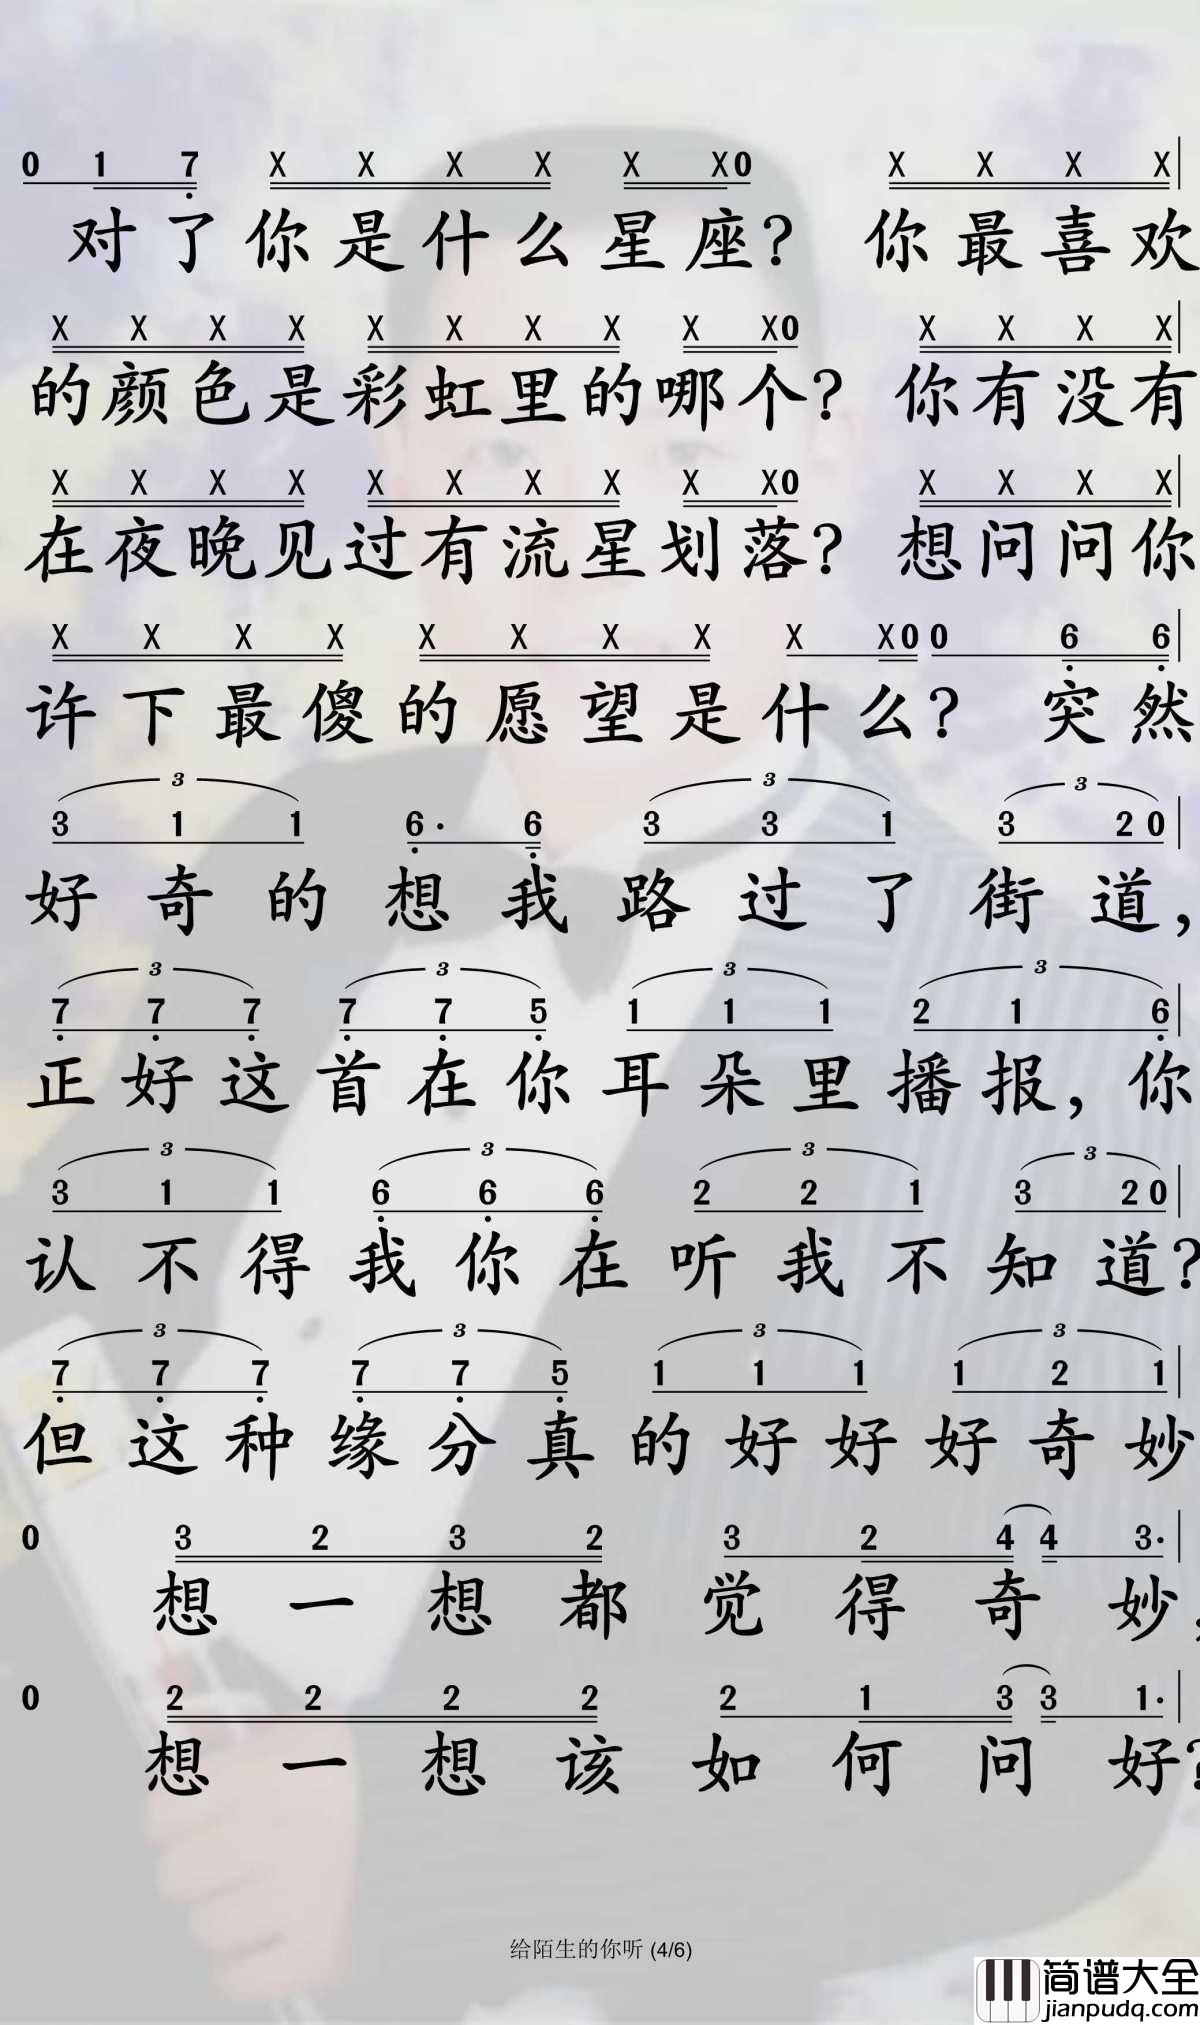 0 1 7 X X X X X X0 X X X X
对了你是什么星座? 你最喜欢
X X X X X X X X X X0 X X X X
的颜色是彩虹里的哪个? 你有没有
X X X X X X X X X X0 X X X X
在夜晚见过有流星划落? 想问问你
X X X X X X X X X X0 0 6 6
许下最傻的愿望是什么? 突然
3 3 3 3
3 1 1 6· 6 3 3 1 3 2 0
好奇的想我路过了街道,
3 3 3 3
7 7 7 7 7 5 1 1 1 2 1 6
正好这首在你耳朵里播报, 你
3 3 3 3
3 1 1 6 6 6 2 2 1 3 2 0
认不得我你在听我不知道?
3 3 3 3
7 7 7 7 7 5 1 1 1 1 2 1
但这种缘分真的好好好奇妙
0 3 2 3 2 3 2 4 4 3·
想一想都觉得奇妙,
0 2 2 2 2 2 1 3 3 1·
想一想该如何问好?
给陌生的你听 (4/6)
简谱大全
jianpudq.com